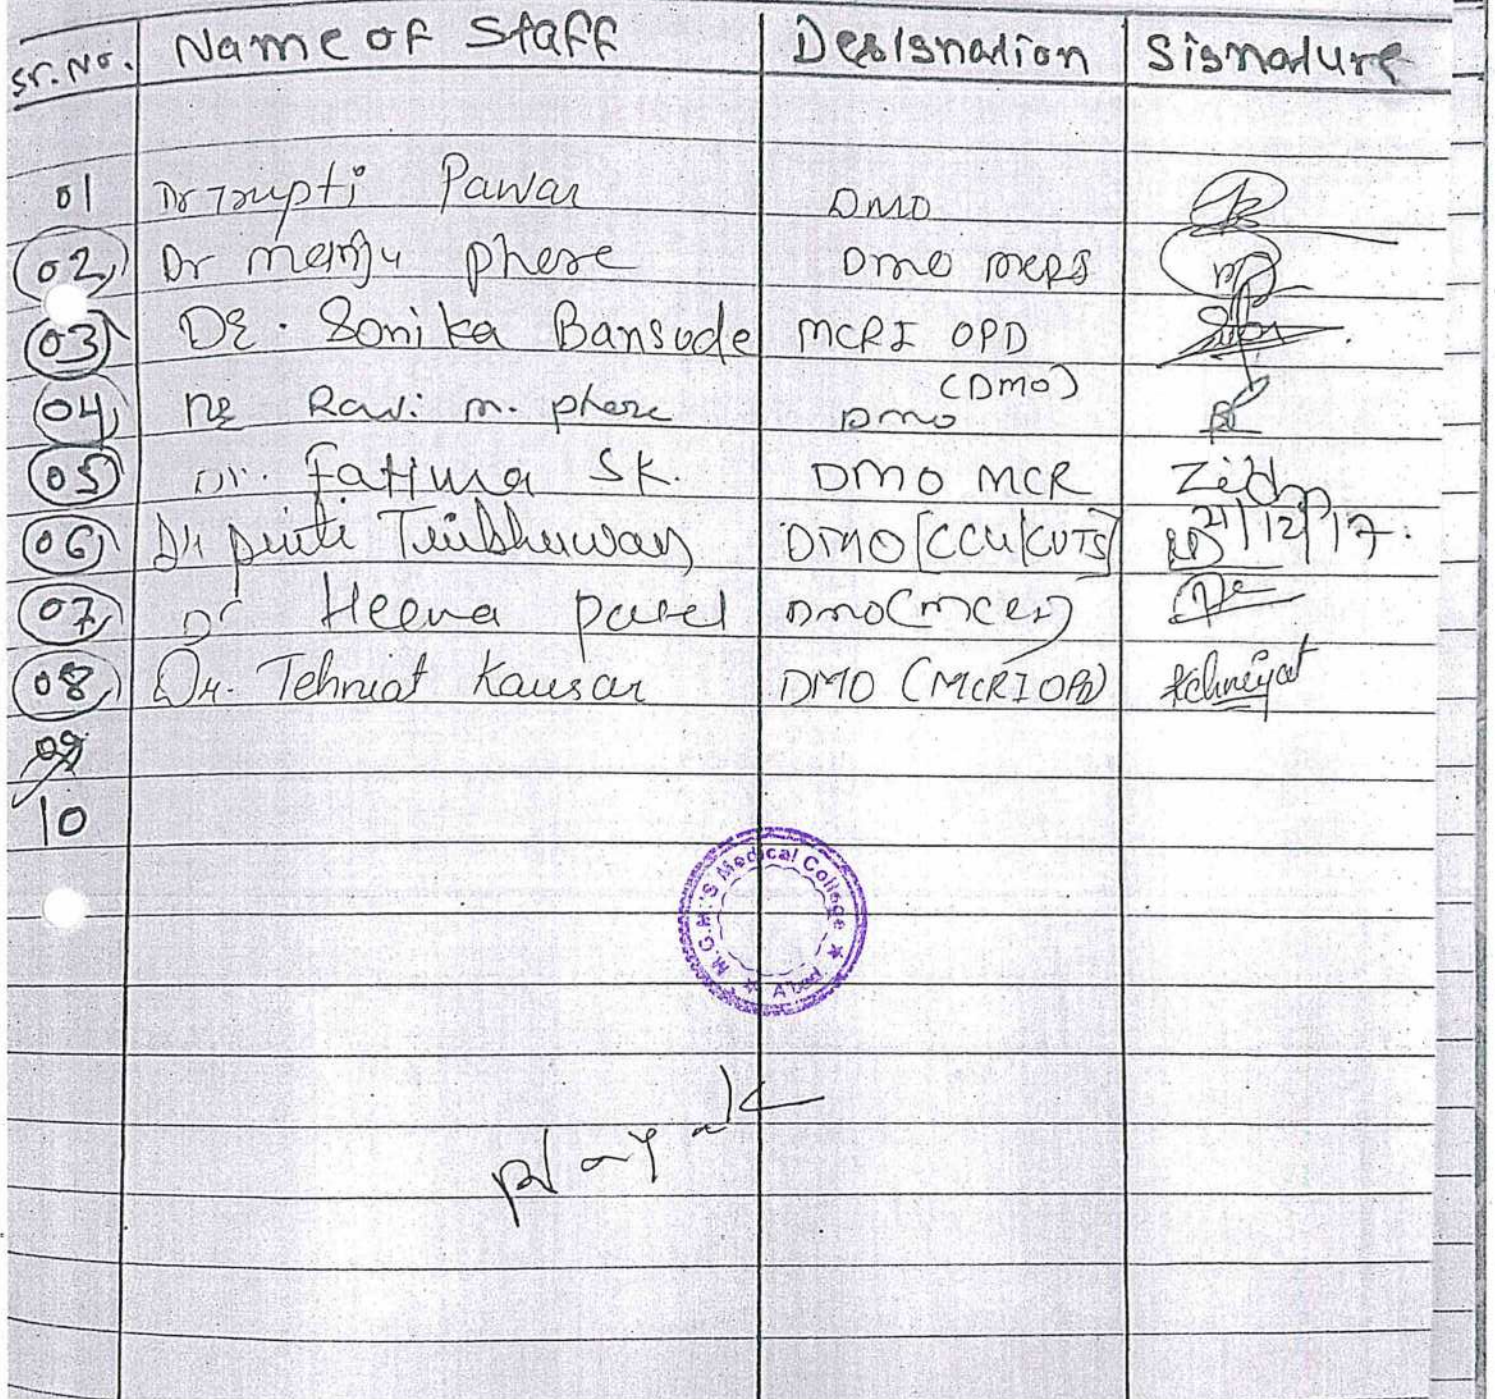 Sr. No. Name of Staff Desisnation Sisnature
01 Dr Trupti Pawar DMO
02 Dr manju phere Dmo
03 DR. Sonika Bansode MCRI OPD (DMO)
04 DR Ravi m. phere Dmo
05 Dr. Fatima SK. DMO MCR
06 Dr priti Tribhuwan DMO [CCU/CVTS] 21/12/17.
07 Dr Heena patel Dmo(mcri)
08 Dr. Tehniat Kausar DMO (MCRI OPD) tehniyat
09
10
M.G.M.'S Medical College ★ A'bad ★